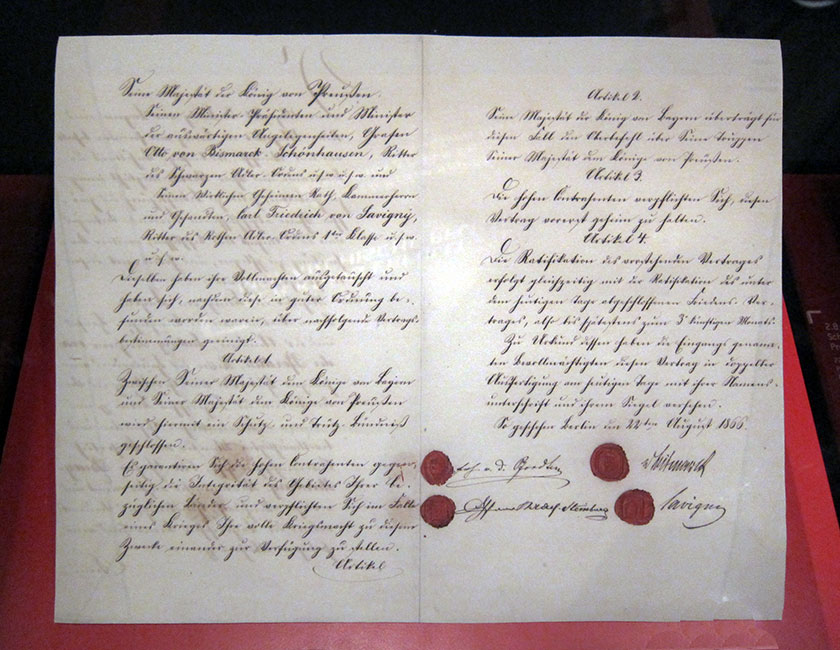 Seine Majestät der König von Preußen.
Seinen Minister Präsidenten und Minister
der auswärtigen Angelegenheiten, Grafen
Otto von Bismarck-Schönhausen, Ritter
des Schwarzen Adler-Ordens u.s.w. u.s.w. und
Seinen Wirklichen Geheimen Rath, Kammerherrn
und Gesandten, Carl Friedrich von Savigny,
Ritter des Rothen Adler-Ordens 1ter Klasse u.s.w.
u.s.w.
Dieselben haben ihre Vollmachten ausgetauscht und
haben sich, nachdem diese in guter Ordnung be-
funden worden waren, über nachfolgende Vertrags-
bestimmungen geeinigt.
Artikel 1.
Zwischen Seiner Majestät dem Könige von Bayern
und Seiner Majestät dem Könige von Preußen
wird hiermit ein Schutz- und Trutz-Bündniß
geschlossen.
Es garantiren Sich die hohen Contrahenten gegen-
seitig die Integrität des Gebietes Ihrer be-
züglichen Länder und verpflichten Sich im Falle
eines Krieges Ihre volle Kriegsmacht zu diesem
Zwecke einander zur Verfügung zu stellen.
Artikel
Artikel 2.
Seine Majestät der König von Bayern überträgt für
diesen Fall den Oberbefehl über Seine Truppen
Seiner Majestät dem Könige von Preußen.
Artikel 3.
Die hohen Contrahenten verpflichten Sich, diesen
Vertrag vorerst geheim zu halten.
Artikel 4.
Die Ratifikation des vorstehenden Vertrages
erfolgt gleichzeitig mit der Ratifikation des unter
dem heutigen Tage abgeschlossenen Friedens-Ver-
trages, also bis spätestens zum 3t künftigen Monats.
Zu Urkund dessen haben die Eingangs genann-
ten Bevollmächtigten diesen Vertrag in doppelter
Ausfertigung am heutigen Tage mit ihrer Namens-
unterschrift und ihrem Siegel versehen.
So geschehen Berlin am 22ten August 1866.
v. d. Pfordten
vBismarck
Savigny